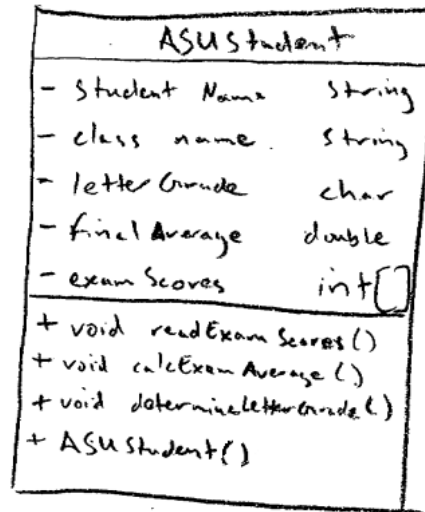 ASUStudent
- Student Name String
- class name. String
- letterGrade char
- final Average double
- exam Scores int[]
+ void readExam Scores()
+ void calcExam Average()
+ void determineLetterGrade()
+ ASUStudent()